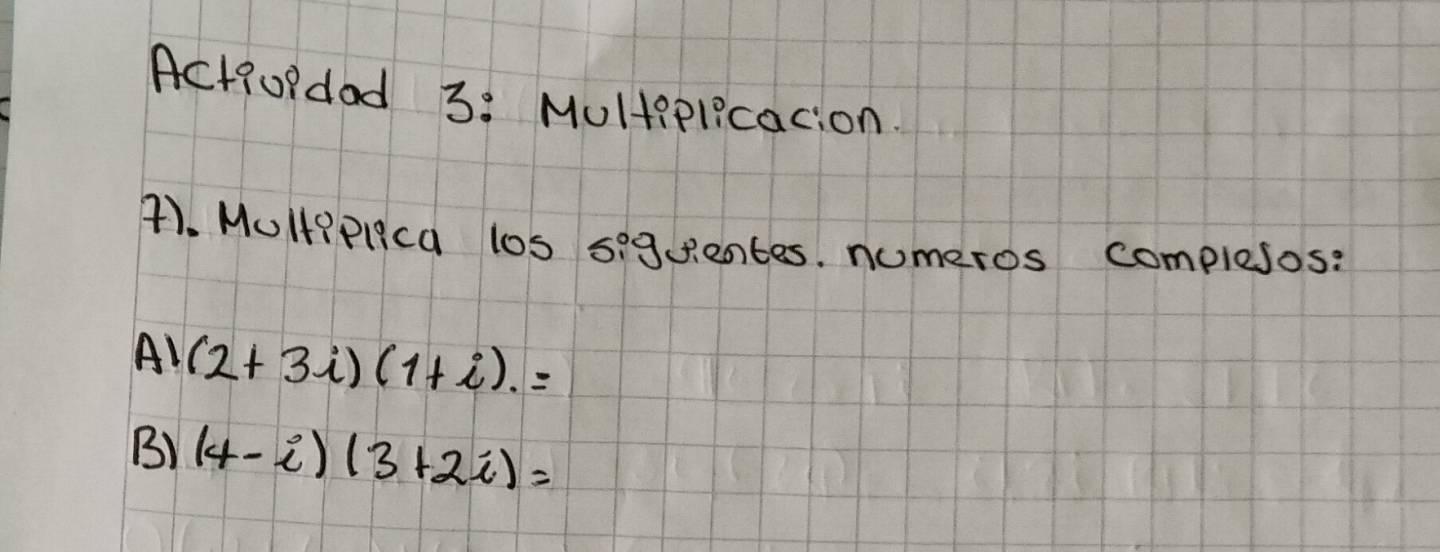 Actividad 3: Multiplicacion.
7). Multiplica los siguientes. numeros complejos:
A) (2+3i)(1+i).=
B) (4-i)(3+2i)=